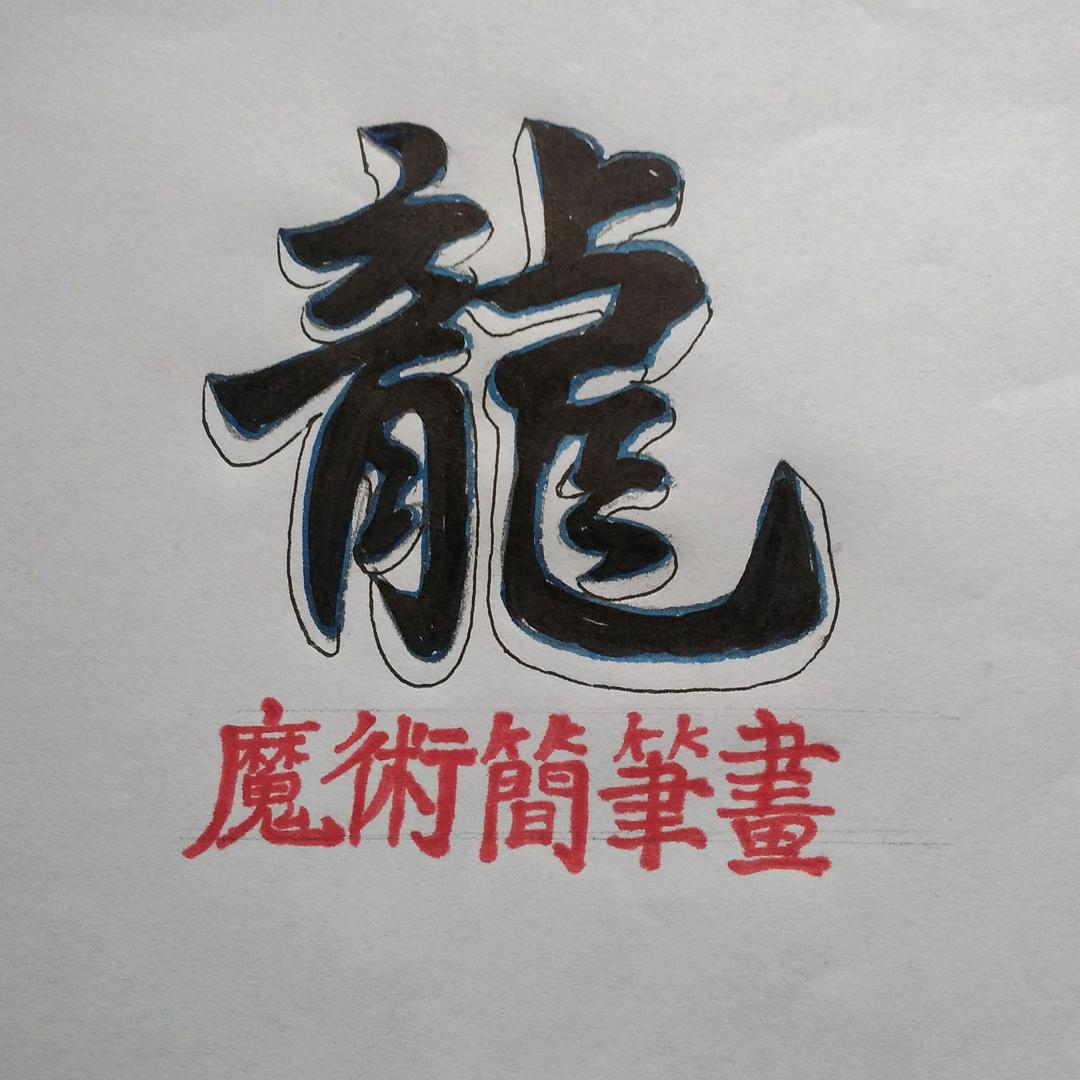 龍
魔術簡筆畫